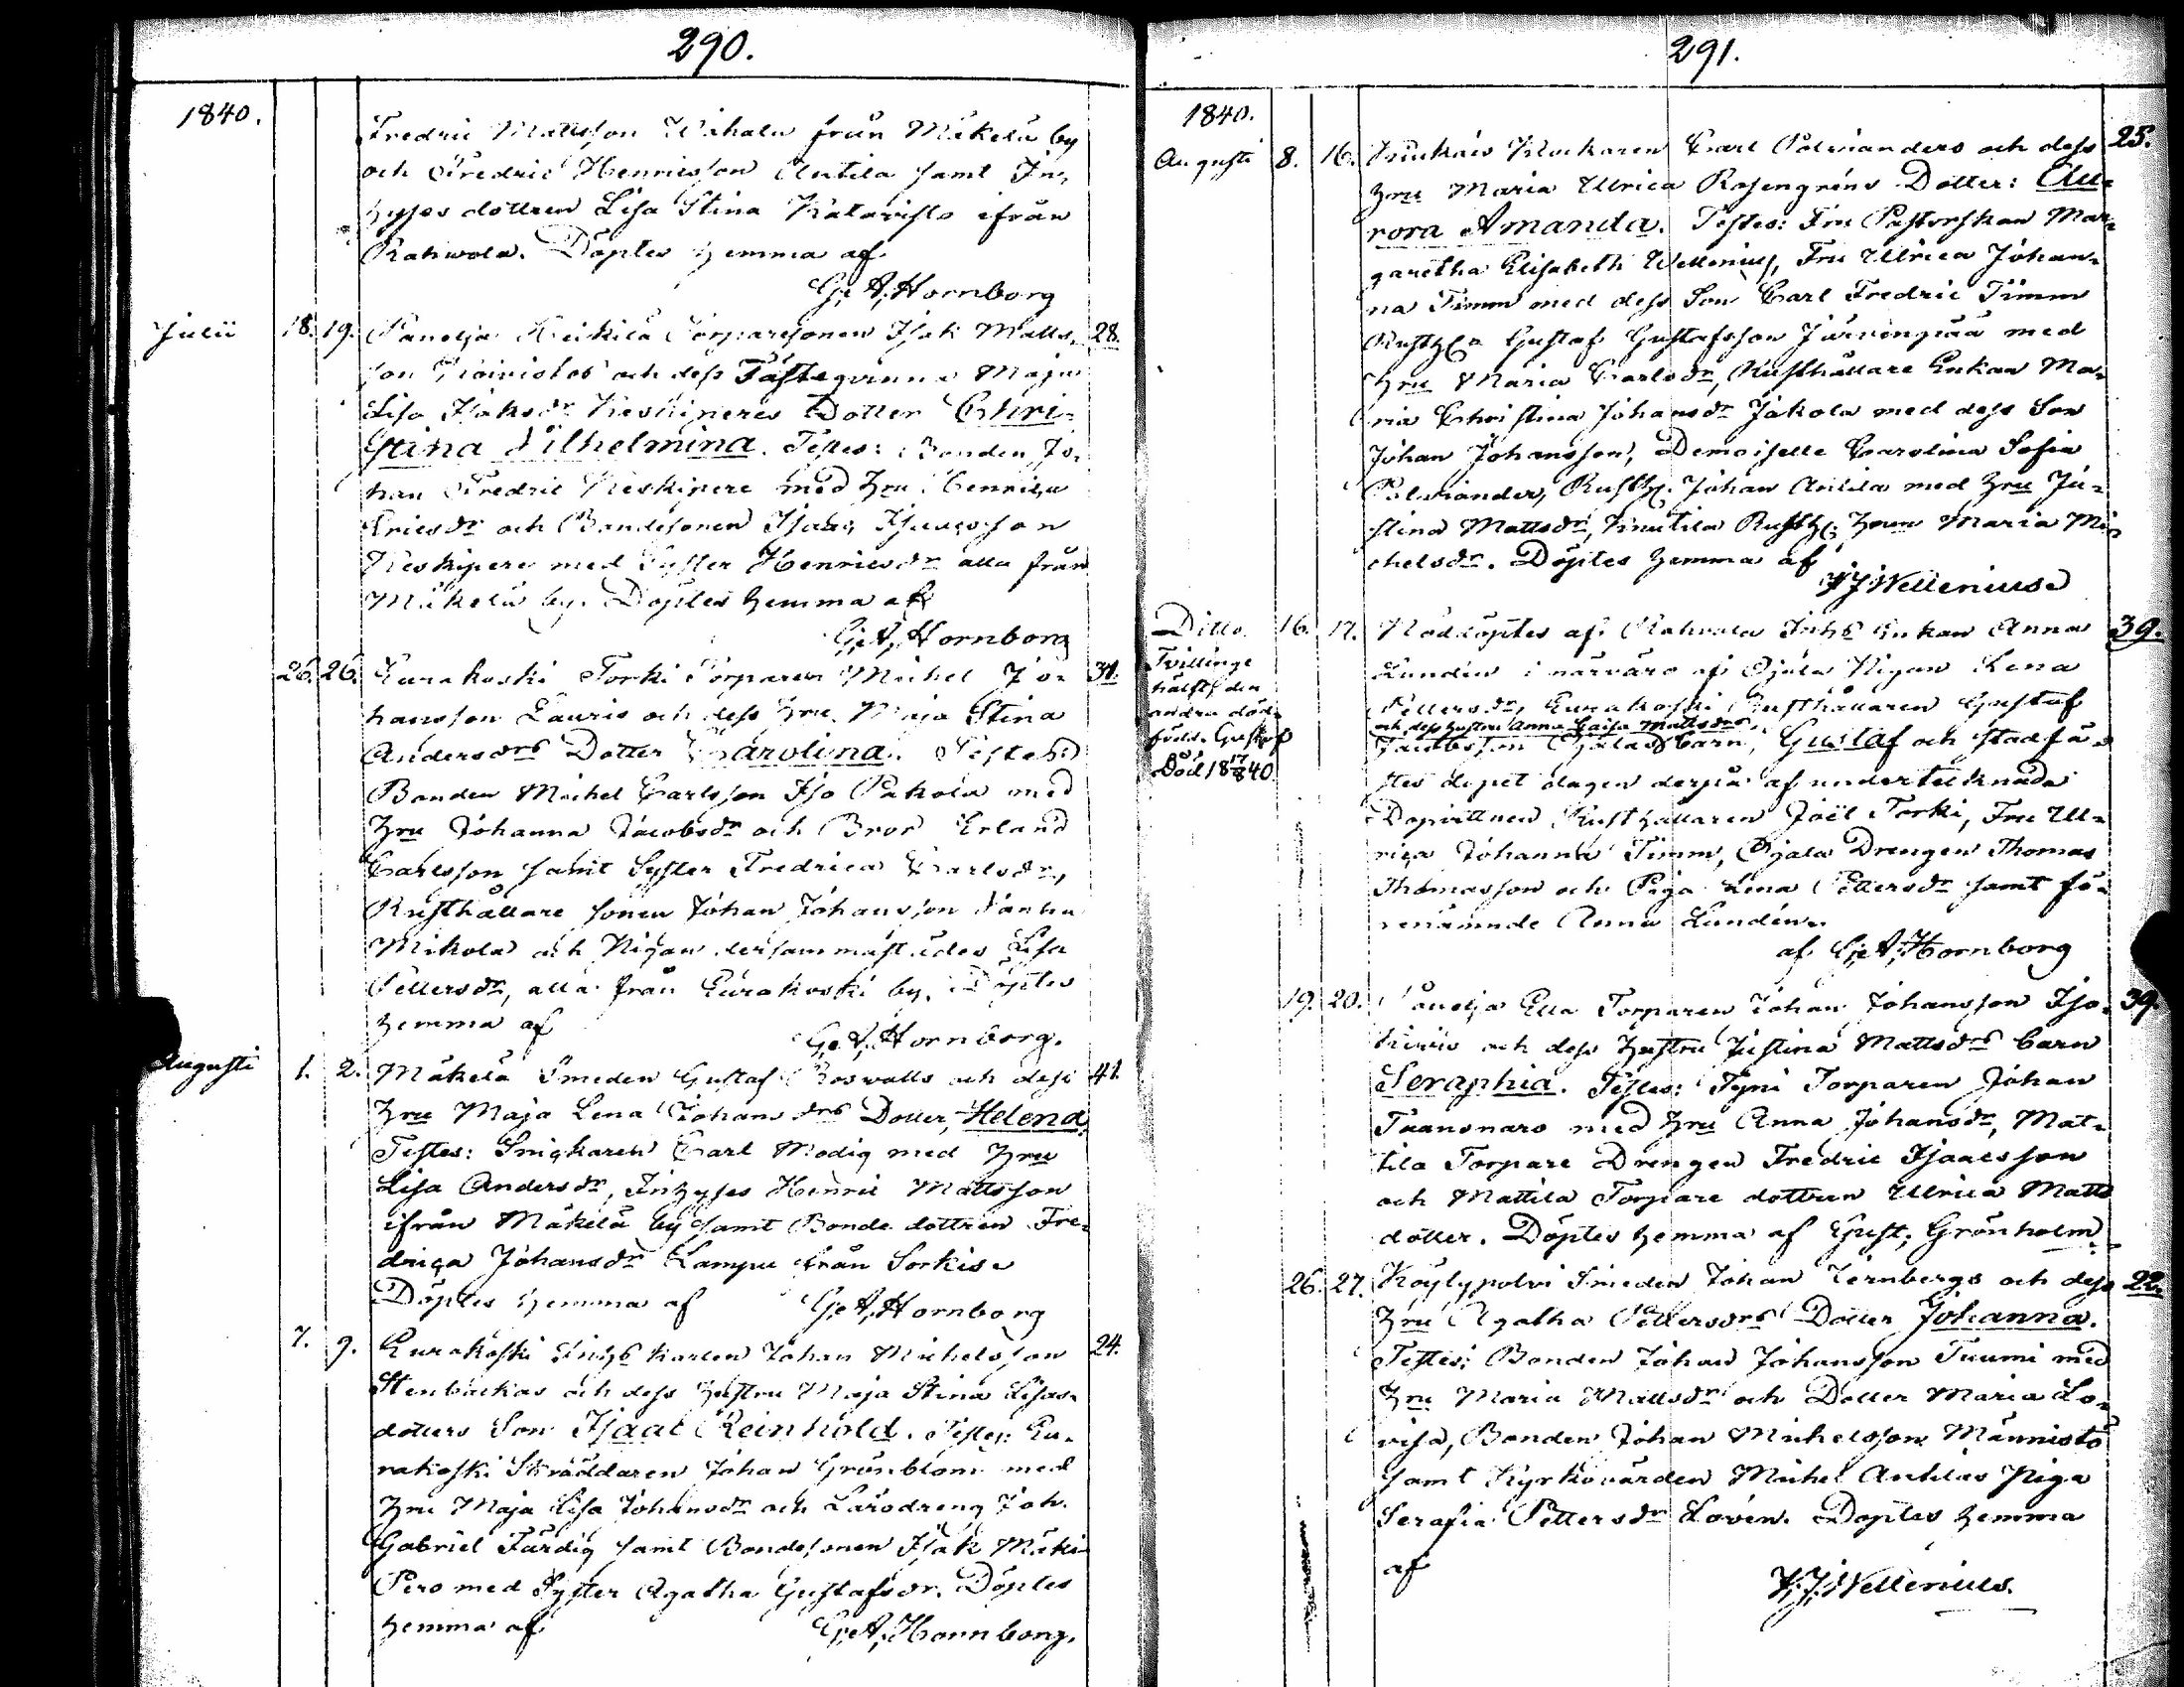 290.
1840.
Fredric Mattsson Wähälä från Mäkelä by
och Fredric Henricsson Antila samt In-
hyses dottren Lisa Stina Katavisto ifrån
Rahwola. Döptes hemma af
G. A. Hornborg
Julii 18. 19. Panelja Heikilä Torparesonen Isak Matts- 28.
son och dess Fästeqvinna Maja
Lisa Isaksdr Keskiperes Dotter Chri-
stina Vilhelmina. Testes: Bonden Jo-
han Fredric Keskipere med Hru Henrica
Ericsdr och Bondesonen Isaac Isaacsson
Keskipere med Syster Henricsdr alla från
Mäkelä by. Döptes hemma af
G. A. Hornborg
26. 26. Eurakoski Torki Torparen Michel Jo- 31.
hansson Lauris och dess Hru Maja Stina
Andersdrs Dotter Carolina. Testes:
Bonden Michel Carlsson Iso Pakola med
Hru Johanna Jacobsdr och Bror Erland
Carlsson samt Syster Fredrica Carlsdr,
Rusthållare sonen Johan Johansson Vanha
Mikola och Pigan dersammastädes Lisa
Pettersdr, alla från Eurakoski by. Döptes
hemma af
G. A. Hornborg.
Augusti 1. 2. Mäkelä Smeden Gustaf Roswalls och dess 41.
Hru Maja Lena Johansdrs Dotter, Helena.
Testes: Snickaren Carl Modig med Hru
Lisa Andersdr, Inhyses Henric Mattsson
ifrån Mäkelä by samt Bonde dottren Fre-
drica Johansdr Lampu från Sorkis.
Döptes hemma af G. A. Hornborg
7. 9. Eurakoski Inhs karlen Johan Michelsson 24.
Stenbackas och dess hustru Maja Stina Lisas-
dotters Son Isaac Reinhold. Testes: Eu-
rakoski Skräddaren Johan Grönblom med
Hru Maja Lisa Johansdr och Lärodreng Joh.
Gabriel Färdig samt Bondesonen Isak Mäki-
Pero med Syster Agatha Gustafsdr. Döptes
hemma af
G. A. Hornborg.
291.
1840.
Augusti 8. 16. Kiukais Klockaren Carl Polvianders och dess 25.
Hru Maria Ulrica Rosengréns Dotter: Au-
rora Amanda. Testes: Fru Pastorskan Mar-
garetha Elisabeth Wellenius, Fru Ulrica Johan-
na Timm med dess Son Carl Fredric Timm
Rusth. Gustaf Gustafsson Järvenpää med
Hru Maria Carlsdr, Rusthållare Enkan Ma-
ria Christina Johansdr Jakola med dess Son
Johan Johansson, Demoiselle Carolina Sofia
Polviander, Rusth. Johan Antila med Hru Ju-
stina Mattsdr, Knutila Rusth. Hrun Maria Mi-
chelsdr. Döptes hemma af
H J Wellenius
Ditto. 16. 17. Nöddöptes af Rahvola Inhs Enkan Anna 39.
Tvillinge
hälft, den
andra död-
född. Gustaf
Död 18 17/8 40
Lundén i närvaro af Ojala Pigan Lena
Pettersdr, Eurakoski Rusthållaren Gustaf
och dess hustru Anna Caisa Mattsdrs,
Jacobsson Ojalas Barn, Gustaf och stadfä-
stes dopet dagen derpå af undertecknad.
Dopvittnen Rusthållaren Joël Torki, Fru Ul-
rica Johanna Timm, Ojala Drengen Thomas
Thomasson och Piga Lena Pettersdr samt fö-
renämnde Anna Lundén.
af G. A. Hornborg
19. 20. Panelja Ella Torparen Johan Johansson Iso- 39.
och dess hustru Justina Mattsdrs Barn
Seraphia. Testes: Tyni Torparen Johan
Tuanonaro med Hru Anna Johansdr, Mat-
tila Torpare Drengen Fredric Isaacsson
och Mattila Torpare dottren Ulrica Matts
dotter. Döptes hemma af Gust. Grönholm
26. 27. Köylypolvi Smeden Johan Ternbergs och dess 22.
Hru Agatha Pettersdrs Dotter Johanna.
Testes: Bonden Johan Johansson Tuumi med
Hru Maria Mattsdr och Dotter Maria Lo-
visa, Bonden Johan Michelsson Männistö
samt Kyrkovärden Michel Antilas Piga
Serafia Pettersdr Lovén. Döptes hemma
af
H. J. Wellenius.